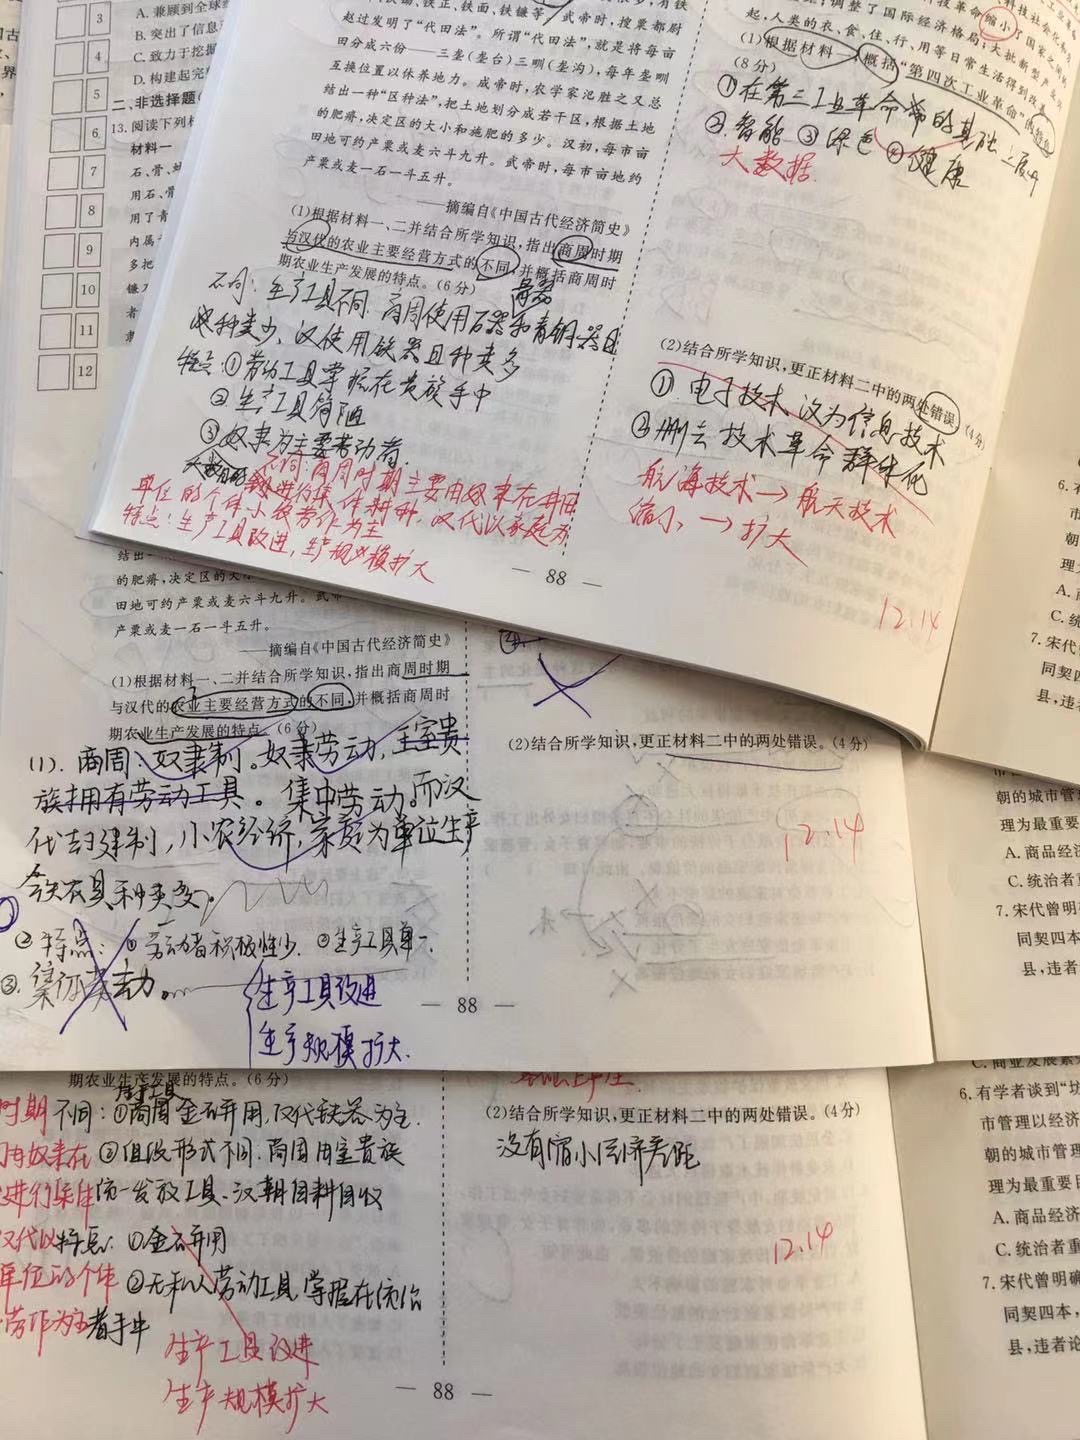 3
4
5
6
7
8
9
10
11
12
A. 兼顾到全球
B. 突出了信息
C. 致力于挖掘
D. 构建起完
二、非选择题
13. 阅读下列
材料一
用石、骨
用了青
内属
多把
镰
者
赵过发明了“代田法”。所谓“代田法”,就是将每亩
田分成六份——三垄(垄台)三甽(垄沟),每年垄甽
互换位置以休养地力。成帝时,农学家氾胜之又总
结出一种“区种法”,把土地划分成若干区,根据土地
的肥瘠,决定区的大小和施肥的多少。汉初,每市亩
田地可约产粟或麦六斗九升。武帝时,每市亩地约
产粟或麦一石一斗五升。
——摘编自《中国古代经济简史》
(1)根据材料一、二并结合所学知识,指出商周时期
与汉代的农业主要经营方式的不同,并概括商周时
期农业生产发展的特点。(6分)
不同:生产工具不同.商周使用石器和青铜器且
种类少、汉使用铁器且种类多
特点:①劳动工具掌握在贵族手中
②生产工具简陋
③奴隶为主要劳动者.
不同:商周时期主要由奴隶在井田
上进行集体耕种,汉代以家庭为
单位的个体小农劳作为主
特点:生产工具改进,生产规模扩大
— 88 —
起,人类的衣、食、住、行、用等日常生活得到改善
(1)根据材料一,概括“第四次工业革命”的特点
(8分)
①在第三工业革命带的基础上展开
②.智能 ③绿色 ④健康
大数据.
(2)结合所学知识,更正材料二中的两处错误。(4分)
①.电子技术改为信息技术
②删去技术革命群体化
航海技术→航天技术
缩小→扩大
12.14
的肥瘠,决定区的大
田地可约产粟或麦六斗九升。武帝
产粟或麦一石一斗五升。
——摘编自《中国古代经济简史》
(1)根据材料一、二并结合所学知识,指出商周时期
与汉代的农业主要经营方式的不同,并概括商周时
期农业生产发展的特点。(6分)
(1).商周:奴隶制。奴隶劳动,王室贵
族拥有劳动工具。集中劳动。而汉
代封建制,小农经济,家庭为单位生产
农具种类多.
②特点:①劳动者积极性少.②生产工具单一.
③.集体劳动.
生产工具改进
生产规模扩大.
— 88 —
(2)结合所学知识,更正材料二中的两处错误。(4分)
12.14
期农业生产发展的特点。(6分)
生产工具
时期 不同:①商周金石并用,汉代铁器为主.
由奴隶在 ②组织形式不同:商周由王室贵族
进行集体 统一发放工具、汉朝自耕自收
汉代以 特点:①金石并用
单位的个体 ②无私人劳动工具,掌握在统治
劳作为主 者手中
生产工具改进
生产规模扩大
— 88 —
(2)结合所学知识,更正材料二中的两处错误。(4分)
没有缩小经济差距
12.14
6. 有
市
朝
理
A. 商
C. 统
7. 宋代
同契
县,违
朝的城市管
理为最重要
A. 商品经
C. 统治者
7. 宋代曾明
同契四本
县,违者
C. 商业发展
6. 有学者谈到“坊
市管理以经济
朝的城市管理
理为最重要
A. 商品经济
C. 统治者重
7. 宋代曾明确
同契四本,
县,违者论